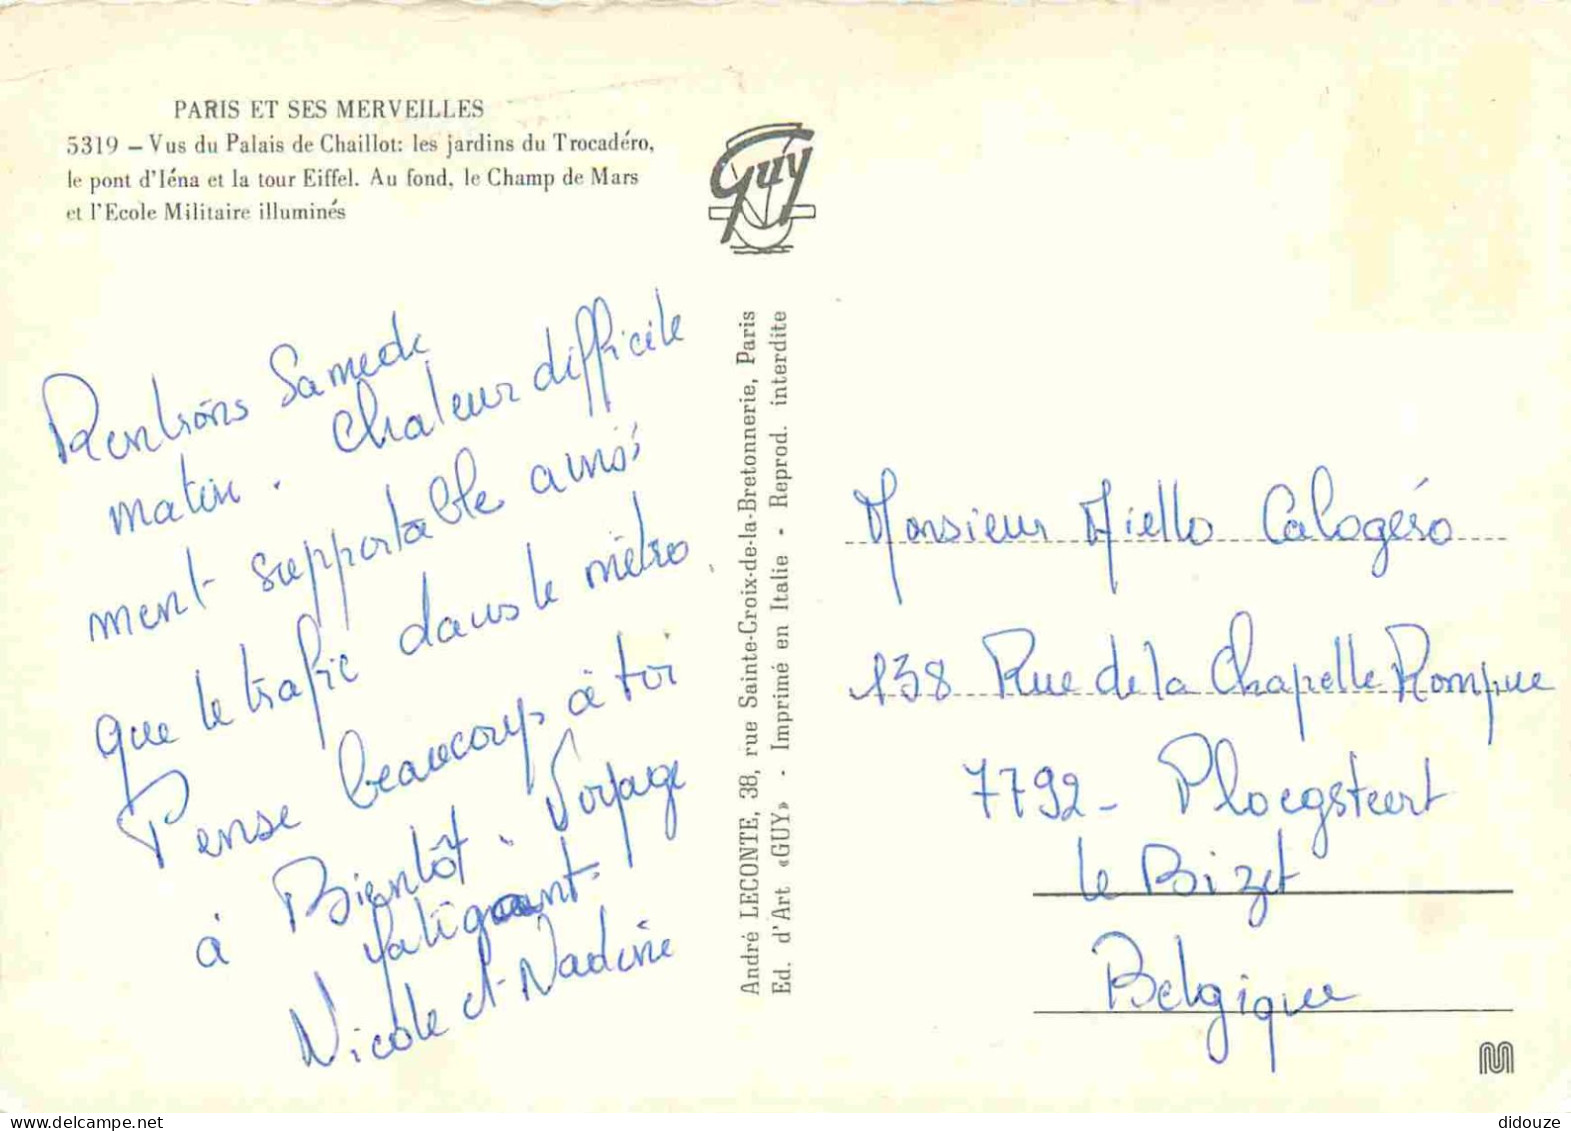 PARIS ET SES MERVEILLES
5319 – Vus du Palais de Chaillot: les jardins du Trocadéro,
le pont d'Iéna et la tour Eiffel. Au fond, le Champ de Mars
et l'Ecole Militaire illuminés
Guy
Rentrons Samedi
matin. Chaleur difficile
ment supportable ainsi
que le trafic dans le métro.
Pense beaucoup à toi
à Bientôt. Voyage
fatigant.
Nicole et Nadine
André LECONTE, 38, rue Sainte-Croix-de-la-Bretonnerie, Paris
Ed. d'Art «GUY» - Imprimé en Italie - Reprod. interdite
Monsieur Aiello Calogéro
138 Rue de la Chapelle Rompue
7792 - Ploegsteert
le Bizet
Belgique
didouze